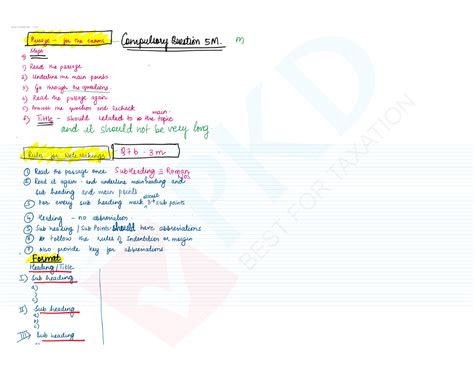 Passage - for the exams Compulsory Question 5M. M
Steps
1) Read the passage
2) Underline the main points.
3) Go through the questions.
4) Read the passage again.
5) Answer the question and recheck
6) Title - should related to the main topic
and it should not be very long
Rules for Note makings Q7b. 3m
① Read the passage once Sub Heading ≡ Roman nos
② Read it again - and underline main heading and
sub heading and main points
③ For every sub heading mark 3-4 sub points
④ Heading - no abbreviation.
⑤ Sub heading / Sub Points should have abbreviations
⑥ follow the rules of Indentation or margin
⑦ also provide key for abbreviations
Format
Heading/Title
I) Sub heading
a)
b)
c)
II) Sub heading
a)
b)
c)
III) Sub heading
a)
b)
VKD
BEST FOR TAXATION